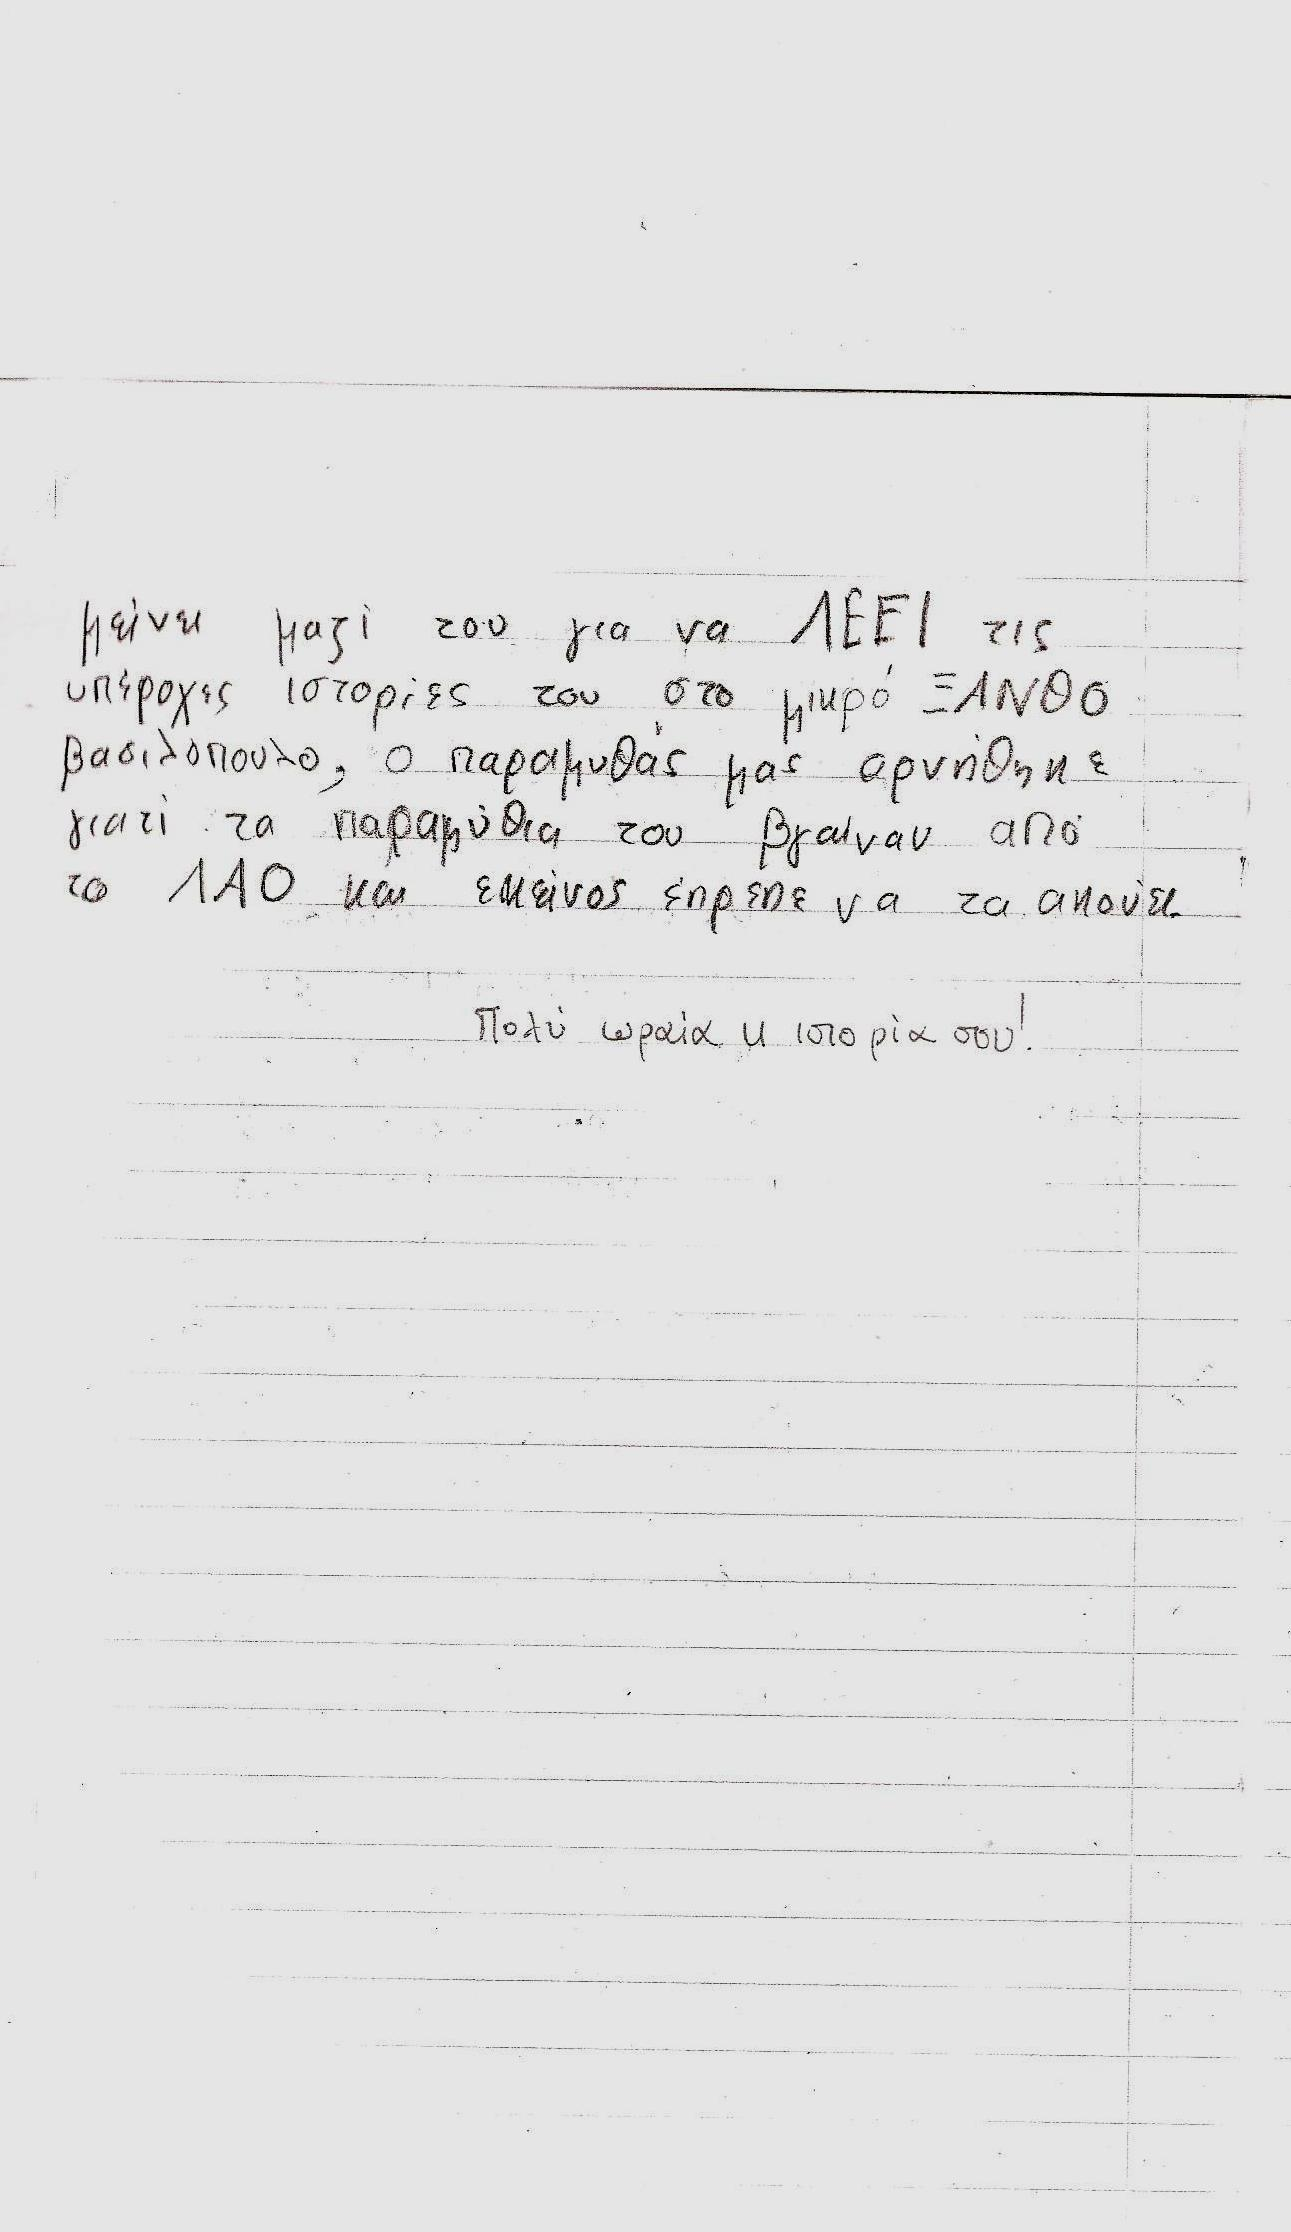 μείνει μαζί του για να ΛΕΕΙ τις
υπέροχες ιστορίες του στο μικρό ΞΑΝΘΟ
βασιλόπουλο, ο παραμυθάς μας αρνήθηκε
γιατί τα παραμύθια του βγαίναν από
το ΛΑΟ και εκείνος έπρεπε να τα ακούει.
Πολύ ωραία η ιστορία σου!